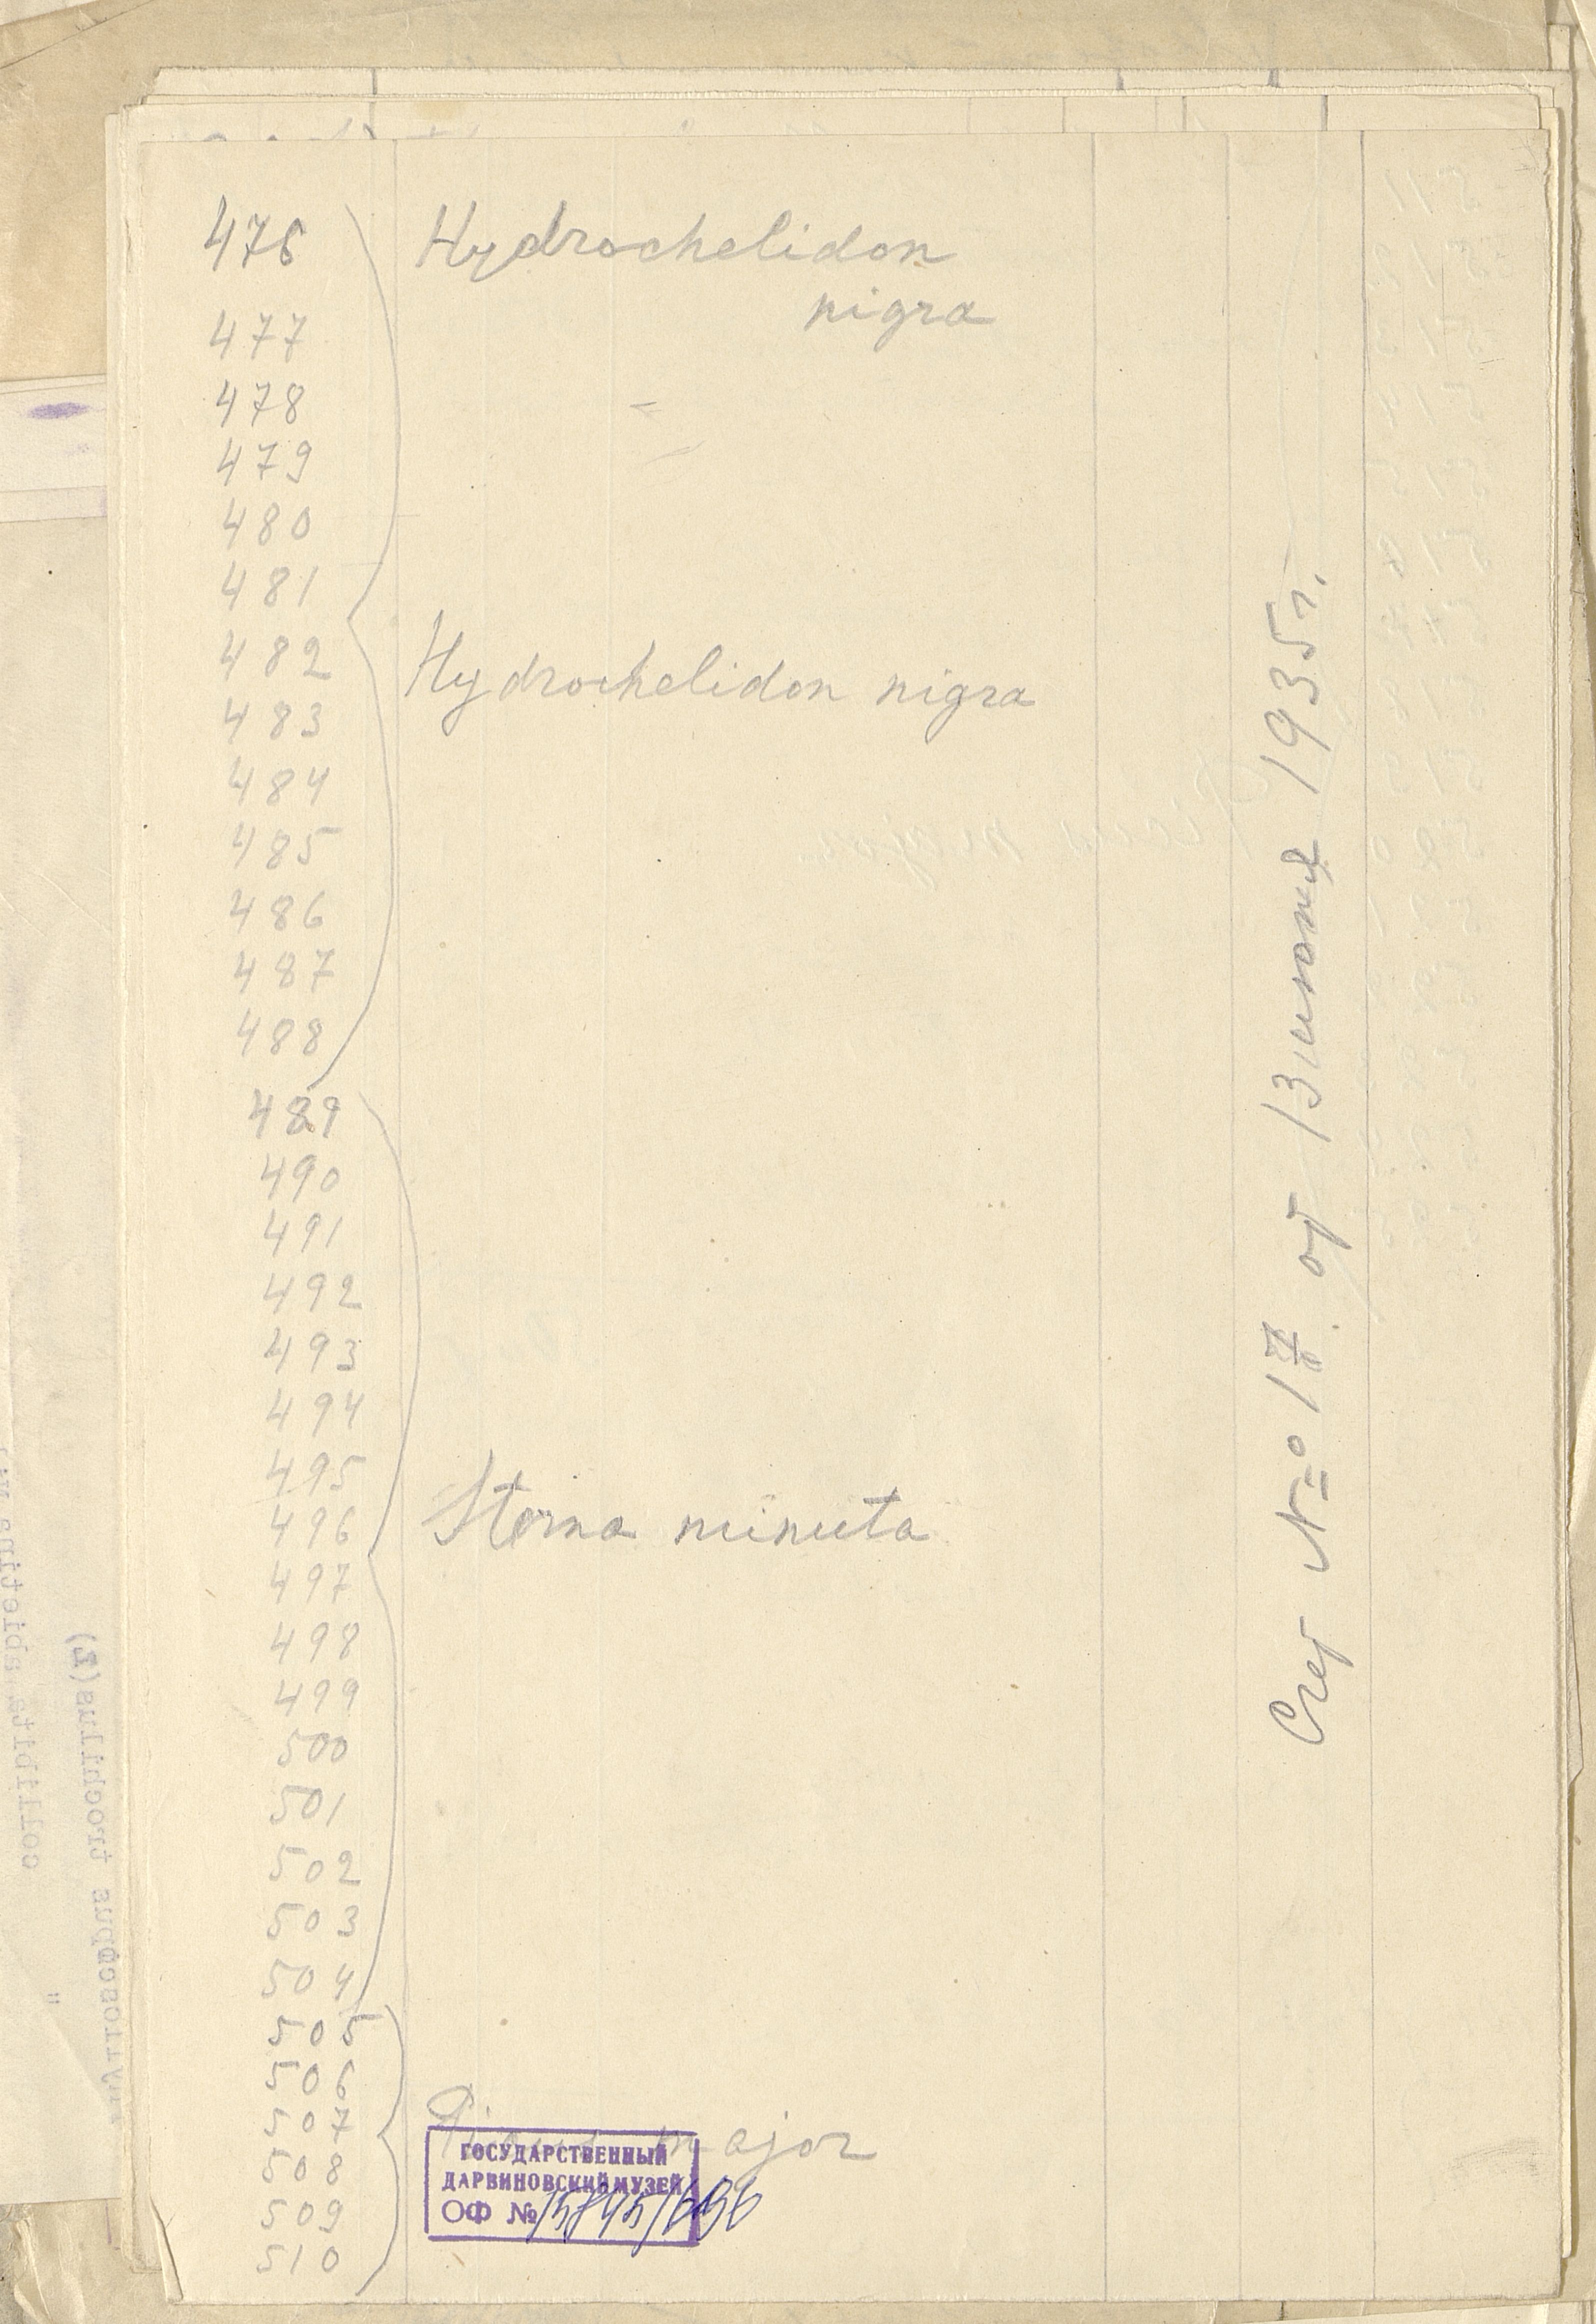 476 Hydrochelidon
nigra
477
478
479
480
481
482 Hydrochelidon nigra
483
484
485
486
487
488
489
490
491
492
493
494
495
496 Sterna minuta
497
498
499
500
501
502
503
504
505
506
507 major
508
509
510
Счет № 17 от 13 июня 1935 г.
ГОСУДАРСТВЕННЫЙ
ДАРВИНОВСКИЙ МУЗЕЙ
ОФ №